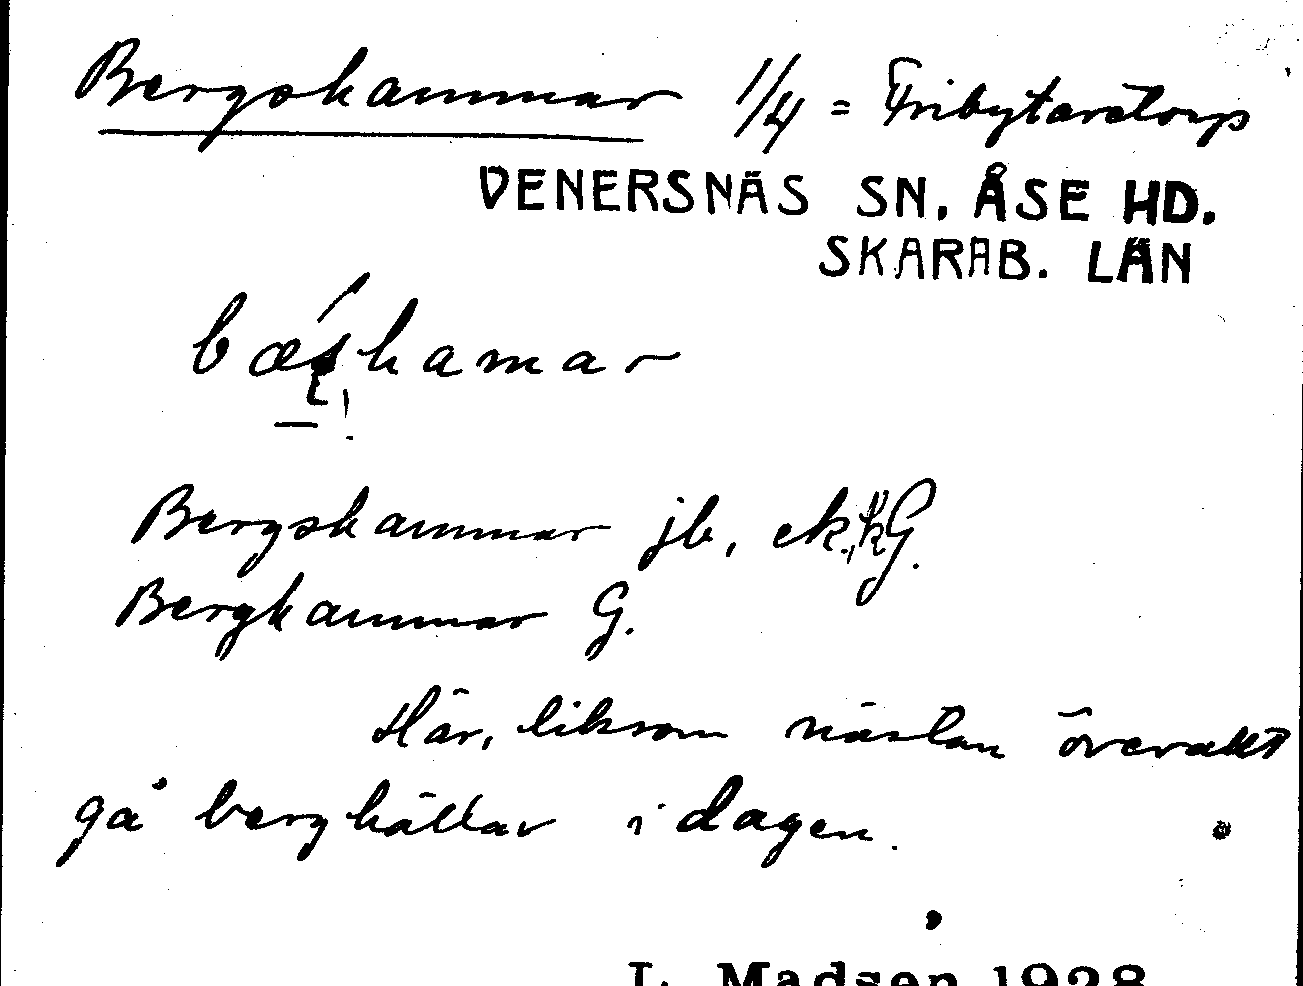 Bergshammar 1/4 = Fribytaretorp
VENERSNÄS SN. ÅSE HD.
SKARAB. LÄN
hamar
Bergshammar jb, ek, G.
Berghammar G.
Här, liksom nästan överallt
gå berghällar i dagen.
L. Madsen 1928